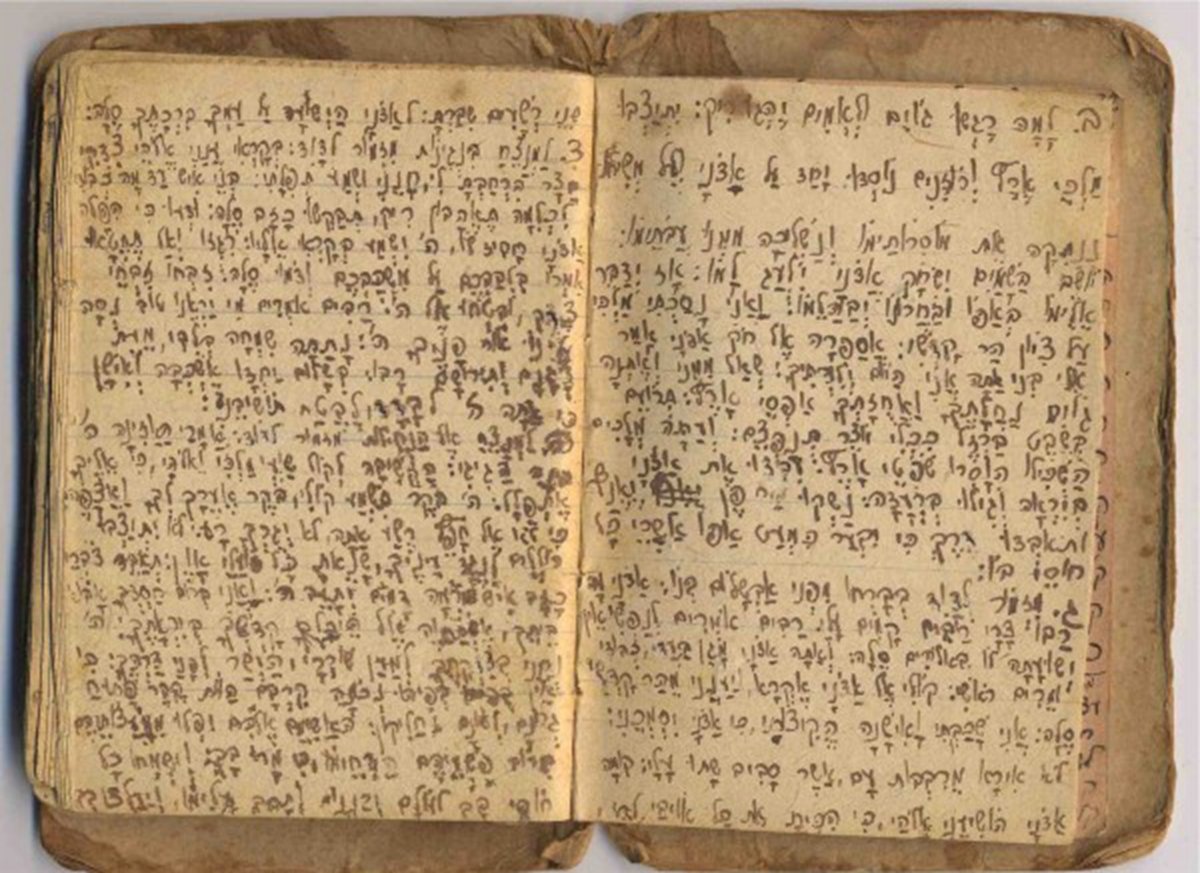 ב. למה רגשו גוים ולאמים יהגו ריק: יתיצבו
מלכי ארץ ורוזנים נוסדו יחד על אדני ועל משיחו
ננתקה את מוסרותימו ונשליכה ממנו עבתימו:
יושב בשמים ישחק אדני ילעג למו: אז ידבר
אלימו באפו ובחרונו יבהלמו: ואני נסכתי מלכי
על ציון הר קדשי: אספרה אל חק אדני אמר
אלי בני אתה אני היום ילדתיך: שאל ממני ואתנה
גוים נחלתך ואחזתך אפסי ארץ: תרועם
בשבט ברזל ככלי יוצר תנפצם: ועתה מלכים
השכילו הוסרו שפטי ארץ: עבדו את אדני
ביראה וגילו ברעדה: נשקו בר פן יאנף
ותאבדו דרך כי יבער כמעט אפו אשרי כל
חוסי בו:
ג. מזמור לדוד בברחו מפני אבשלום בנו: אדני מה
רבו צרי רבים קמים עלי רבים אומרים לנפשי אין
ישועתה לו באלהים סלה: ואתה אדני מגן בעדי, כבודי
ומרים ראשי: קולי אל אדני אקרא, ויענני מהר קדשו
סלה: אני שכבתי ואישנה הקיצותי, כי אדני יסמכני:
לא אירא מרבבות עם, אשר סביב שתו עלי: קומה
אדני הושיעני אלהי, כי הכית את כל אויבי לחי,
שני רשעים שברת: לאדני הישועה על עמך ברכתך סלה:
ד. למנצח בנגינות מזמור לדוד: בקראי ענני אלהי צדקי
בצר הרחבת לי, חנני ושמע תפלתי: בני איש עד מה כבודי
לכלמה תאהבון ריק, תבקשו כזב סלה: ודעו כי הפלה
אדני חסיד לו, ה' ישמע בקראי אליו: רגזו ואל תחטאו
אמרו בלבבכם על משכבכם ודמו סלה: זבחו זבחי
צדק, ובטחו אל ה': רבים אומרים מי יראנו טוב נסה
עלינו אור פניך ה': נתתה שמחה בלבי, מעת
דגנם ותירושם רבו: בשלום יחדו אשכבה ואישן
כי אתה ה' לבדד לבטח תושיבני:
ה. למנצח אל הנחילות מזמור לדוד: אמרי האזינה ה'
בינה הגיגי: הקשיבה לקול שועי מלכי ואלהי, כי אליך
אתפלל: ה' בקר תשמע קולי, בקר אערך לך ואצפה:
כי לא אל חפץ רשע אתה, לא יגרך רע: לא יתיצבו
הוללים לנגד עיניך, שנאת כל פועלי און: תאבד דברי
כזב, איש דמים ומרמה יתעב ה': ואני ברב חסדך אבוא
ביתך, אשתחוה אל היכל קדשך ביראתך: ה'
נחני בצדקתך למען שוררי, הושר לפני דרכך: כי
אין בפיהו נכונה קרבם הוות קבר פתוח
גרונם, לשונם יחליקון: האשימם אלהים יפלו ממועצותיהם
ברב פשעיהם הדיחמו, כי מרו בך: וישמחו כל
חוסי בך לעולם ירננו ותסך עלימו, ויעלצו בך